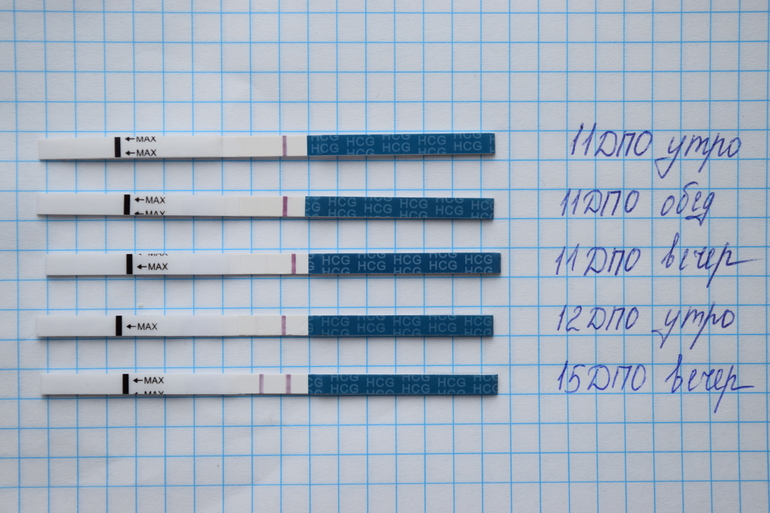 ←MAX
←MAX
HCG HCG HCG HCG HCG
HCG HCG HCG
11 ДПО утро
←MAX
←MAX
HCG HCG HCG HCG
HCG HCG HCG
11 ДПО обед
←MAX
←MAX
HCG HCG HCG HCG
HCG HCG HCG
11 ДПО вечер
←MAX
HCG HCG HCG
HCG HCG HCG HCG
12 ДПО утро
←MAX
←MAX
HCG HCG HCG HCG
HCG HCG HCG
15 ДПО вечер